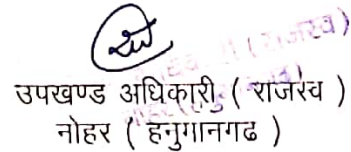 उपखण्ड अधिकारी ( राजस्व )
नोहर ( हनुगानगढ )